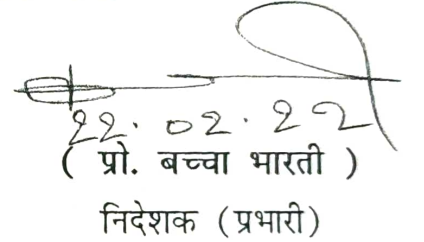 22.02.22
( प्रो. बच्चा भारती )
निदेशक (प्रभारी)